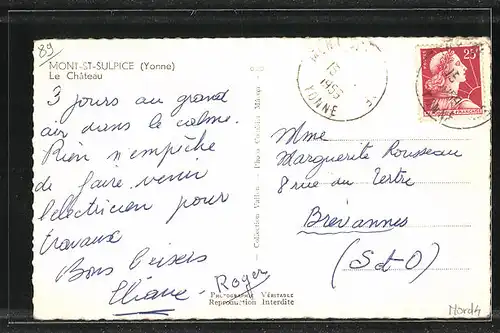 89
MONT-ST-SULPICE (Yonne)
Le Château
3 jours au grand
air dans le calme.
Rien n'empêche
de faire venir
l'electricien pour
travaux
Bons baisers
Eliane - Roger
PHOTOGRAPHIE VÉRITABLE
Reproduction Interdite
Collection Vallon - Photo
YONNE
25F
Mme
Marguerite Rousseau
8 rue du Tertre
Brévannes
(S et O)
Mord4